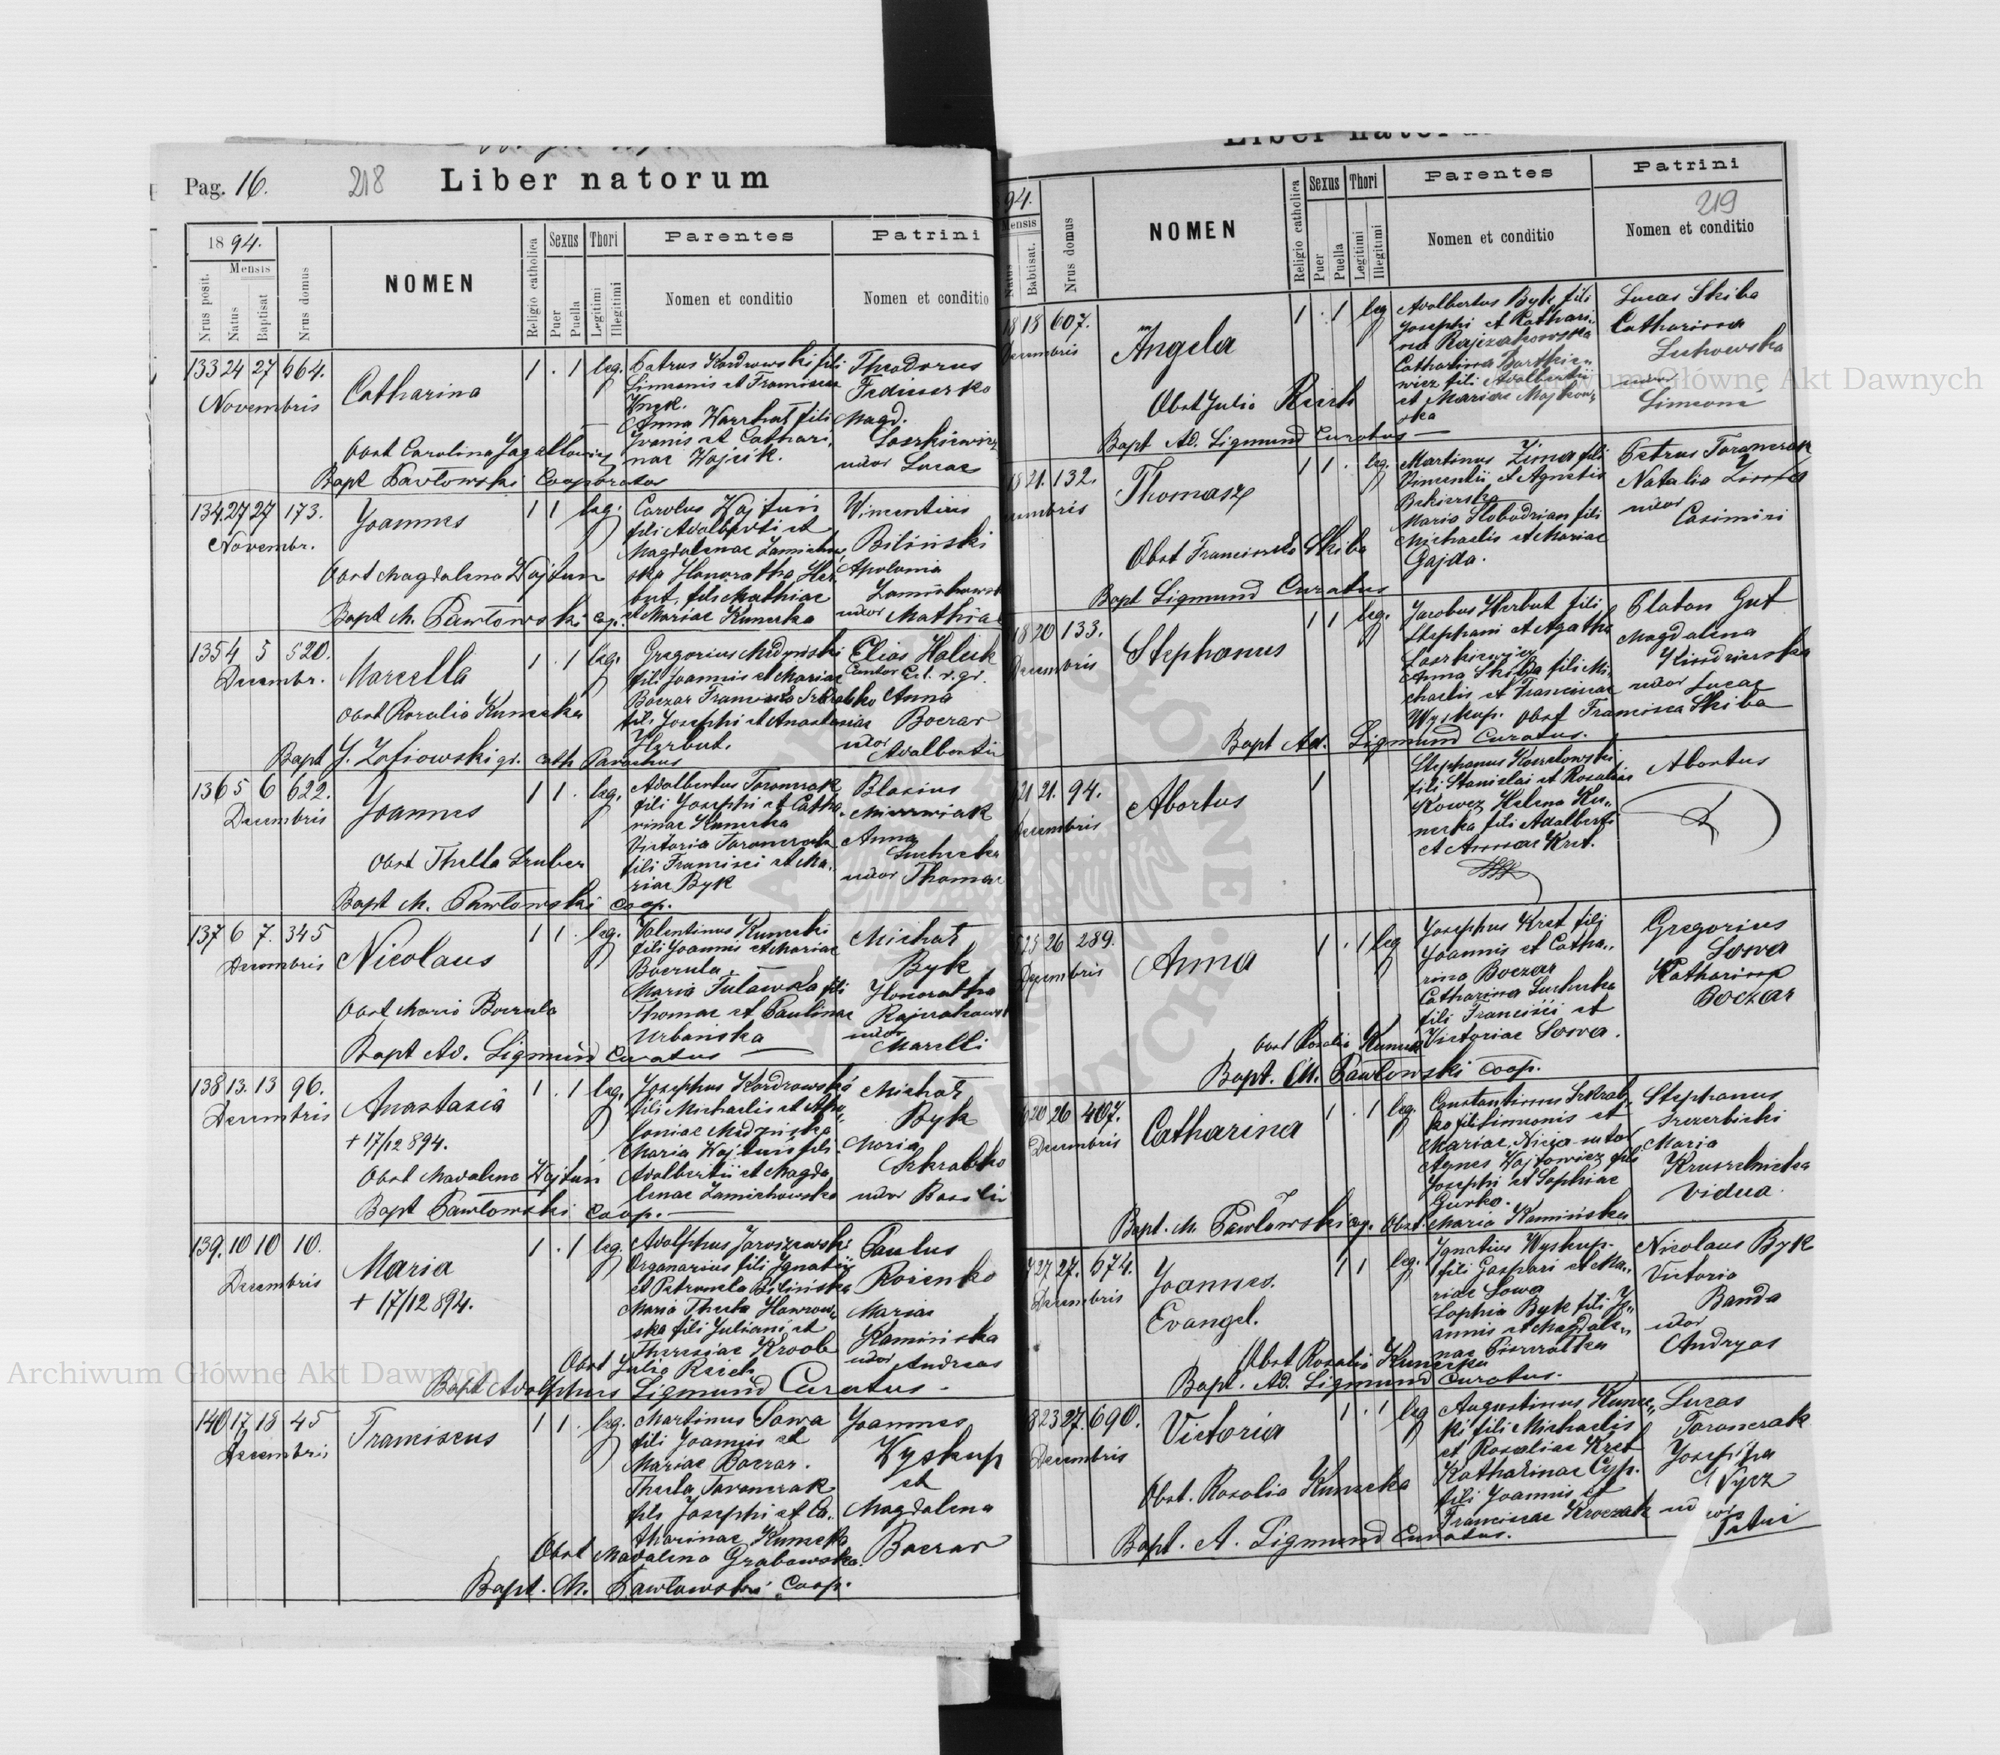 Pag. 16.
218
Liber natorum
1894.
Nrus posit.
Mensis
Natus
Baptisat
Nrus domus
NOMEN
Religio catholica
Sexus
Puer
Puella
Thori
Legitimi
Illegitimi
Parentes
Nomen et conditio
Patrini
Nomen et conditio
133 24 27 664.
Novembris
Catharina
1 . 1 leg.
Petrus Kordrowski fili
Simeonis et Franciscae
Anna Warchał fili
Ivanis et Cathari,
nae Wojcik.
Theodorus
Magd.
uxor Lucae
Obst Carolina
Bapt Pawłowski Cooperatus
134. 27 27 173.
Novembr.
Joannes
1 1 leg.
Carolus Wajtuń
fili Adalberti et
Magdalenae
ska Honoratha Her
but, fili Mathiae
et Mariae Kunecka
Vincentius
Biliński
Apolonia
uxor Mathiae
Obst Magdalena Wajtun
Bapt M. Pawłowski cop.
135 4 5 520.
Decembr.
Marcella
1 . 1 leg.
Gregorius
fili Joannis et Mariae
Boczar Francisca
fili Josephi et Anastasiae
Herbut.
Elias
Cantor Ecl. r. gr.
Anna
Boczar
uxor
Adalberti
Obst Rozalia Kunecka
Bapt J. Zofiowski gr. cath Parochus
136 5 6 622.
Decembris
Joannes
1 1 . leg.
Adalbertus Taranczak
fili Josephi et Catha,
rinae Kunecka
Victoria Taranczak
fili Francisci et Ma,
riae Byk
Blasius
Anna
Suchecka
uxor Thomae
Obst Thekla Gruber
Bapt M. Pawłowski coop.
137 6 7. 345
Decembris
Nicolaus
1 1 . leg.
Valentinus Kunecki
fili Joannis et Mariae
Boczula.
Maria fili
Thomae et Paulinae
Urbańska
Michał
Byk
Honoratha
uxor
Marcelli
Obst Maria Boczula
Bapt Ad. Sigmund Curatus
138 13. 13 96.
Decembris
Anastasia
+ 17/12 894.
1 . 1 leg.
Josephus Kordrowski
fili Michaelis et Apo,
loniae
Maria Wajtuń fili
Adalberti et Magda
lenae
Michał
Byk
Maria
Szkrabko
uxor
Obst Madalena Wajtun
Bapt Pawłowski Coop.
139. 10 10 10.
Decembris
Maria
+ 17/12 894.
1 . 1 leg.
Adolphus Jaroszewski
Organarius fili Ignatii
et Petronela Bilińska
Maria Thecla
ska fili Juliani et
Theresiae
Paulus
Maria
Kamińska
uxor Andreas
Obst Julia Reich.
Bapt Adolphus Sigmund Curatus.
140 17 18 45
Decembris
Franciscus
1 1 . leg.
Martinus Sowa
fili Joannis et
Mariae Boczar.
Thecla Taranczak
fili Josephi et Ca,
tharinae Kunecka
Joannes
Wyskup
et
Magdalena
Boczar
Obst Madalena Grabowska
Bapt. M. Pawłowski Coop.
Liber natorum
94.
Mensis
Natus
Babtisat.
Nrus domus
NOMEN
Religio catholica
Sexus
Puer
Puella
Thori
Legitimi
Illegitimi
Parentes
Nomen et conditio
Patrini
219
Nomen et conditio
18 18 607.
Decembris
Angela
1 . 1 leg
Adalbertus Byk, fili
Josephi et Cathari,
na
Catharina Bartkie,
wicz fili Adalberti
et Mariae
ska
Lucas Skiba
Catharina
uxor
Simeoni
Obst Julia Reich
Bapt Ad. Sigmund Curatus
18 21. 132.
Thomasz
1 1 . leg.
Martinus Zima fili
Vincentii et Agnetis
Maria Slobodrian fili
Michaelis et Mariae
Gajda.
Petrus Taranczak
Natalia Zima
uxor
Casimiri
Obst Francisca Skiba
Bapt Sigmund Curatus
18 20 133.
Decembris
Stephanus
1 1 leg.
Jacobus Herbut fili
Stephani et Agatha
Anna Skiba fili Mi,
chaelis et Franciscae
Wyskup.
Platon Gut
Magdalena
uxor Lucae
Obst Francisca Skiba
Bapt Ad. Sigmund Curatus.
21 21. 94.
Decembris
Abortus
1
Stephanus
fili Stanislai et Rosaliae
Helena Ku,
necka fili Adalberti
et Annae Kret.
Abortus
25 26 289.
Decembris
Anna
1 . 1 leg
Josephus Kret fili
Joannis et Catha,
rina Boczar
Catharina Suchecka
fili Francisci et
Victoriae Sowa.
Gregorius
Sowa
Katharina
Boczar
Obst Rosalia Kunecka
Bapt. M. Pawłowski Coop.
20 26 407.
Decembris
Catharina
1 . 1 leg.
Constantinus Szkrab,
ko fili Simeonis et
Mariae
Agnes Wojtowicz fili
Josephi et Sophiae
Gurko.
Stephanus
Maria
Vidua.
Bapt. M. Pawłowski cop. Obst. Maria Kamińska
27 27. 574.
Decembris
Joannes.
Evangel.
1 1 leg.
Ignatius Wyskup.
fili Gaspari et Ma,
riae Sowa
Sophia Byk fili Jo,
annis et Magdale,
nae
Nicolaus Byk
Victoria
Banda
uxor
Andryas
Obst Rosalia Kunecka
Bapt. Ad. Sigmund Curatus.
23 27. 690.
Decembris
Victoria
1 . 1 leg
Augustinus Kunec,
ki fili Michaelis
et Rosaliae Kret
Katharinae Cyp.
fili Joannis et
Franciscae
Lucas
Taranczak
Josefina
Obst. Rosalia Kunecka
Bapt. A. Sigmund Curatus.
Archiwum Główne Akt Dawnych
Archiwum Główne Akt Dawnych